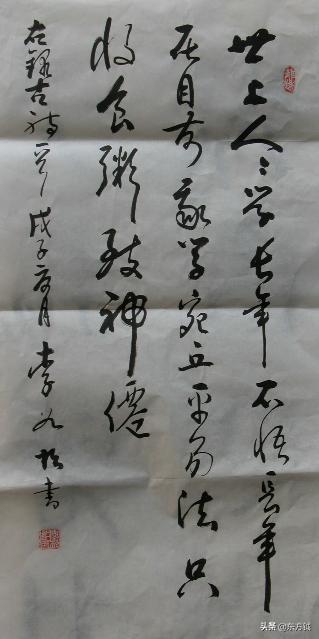 世上人人学长年不悟长年
在目前我学宛丘平易法只
将食粥致神仙
右录古诗一首戊子年月李
书
头条@东方诚